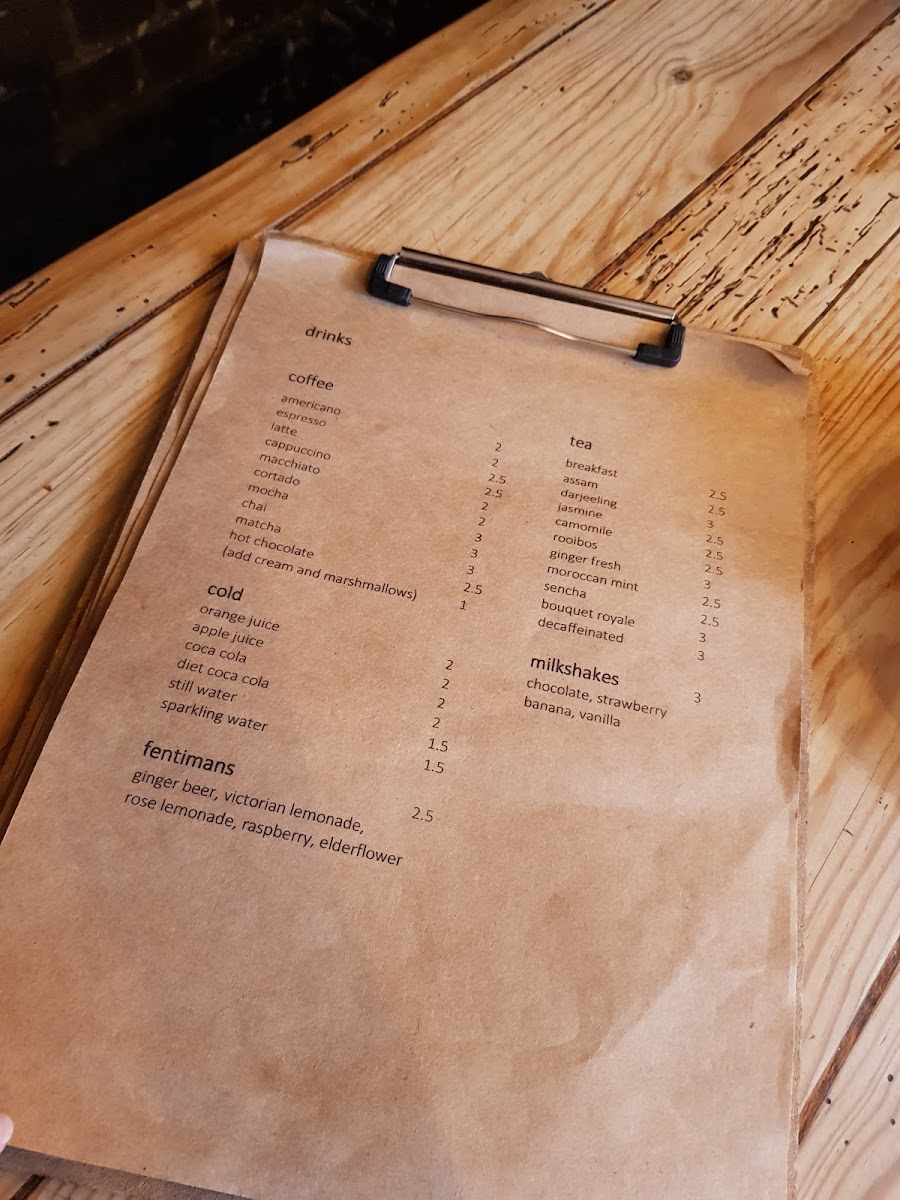 drinks
coffee
americano 2
espresso 2
latte 2.5
cappuccino 2.5
macchiato 2
cortado 2
mocha 3
chai 3
matcha 3
hot chocolate 2.5
(add cream and marshmallows) 1
cold
orange juice 2
apple juice 2
coca cola 2
diet coca cola 2
still water 1.5
sparkling water 1.5
fentimans
ginger beer, victorian lemonade, 2.5
rose lemonade, raspberry, elderflower
tea
breakfast 2.5
assam 2.5
darjeeling 3
jasmine 2.5
camomile 2.5
rooibos 2.5
ginger fresh 3
moroccan mint 2.5
sencha 2.5
bouquet royale 3
decaffeinated 3
milkshakes
chocolate, strawberry 3
banana, vanilla